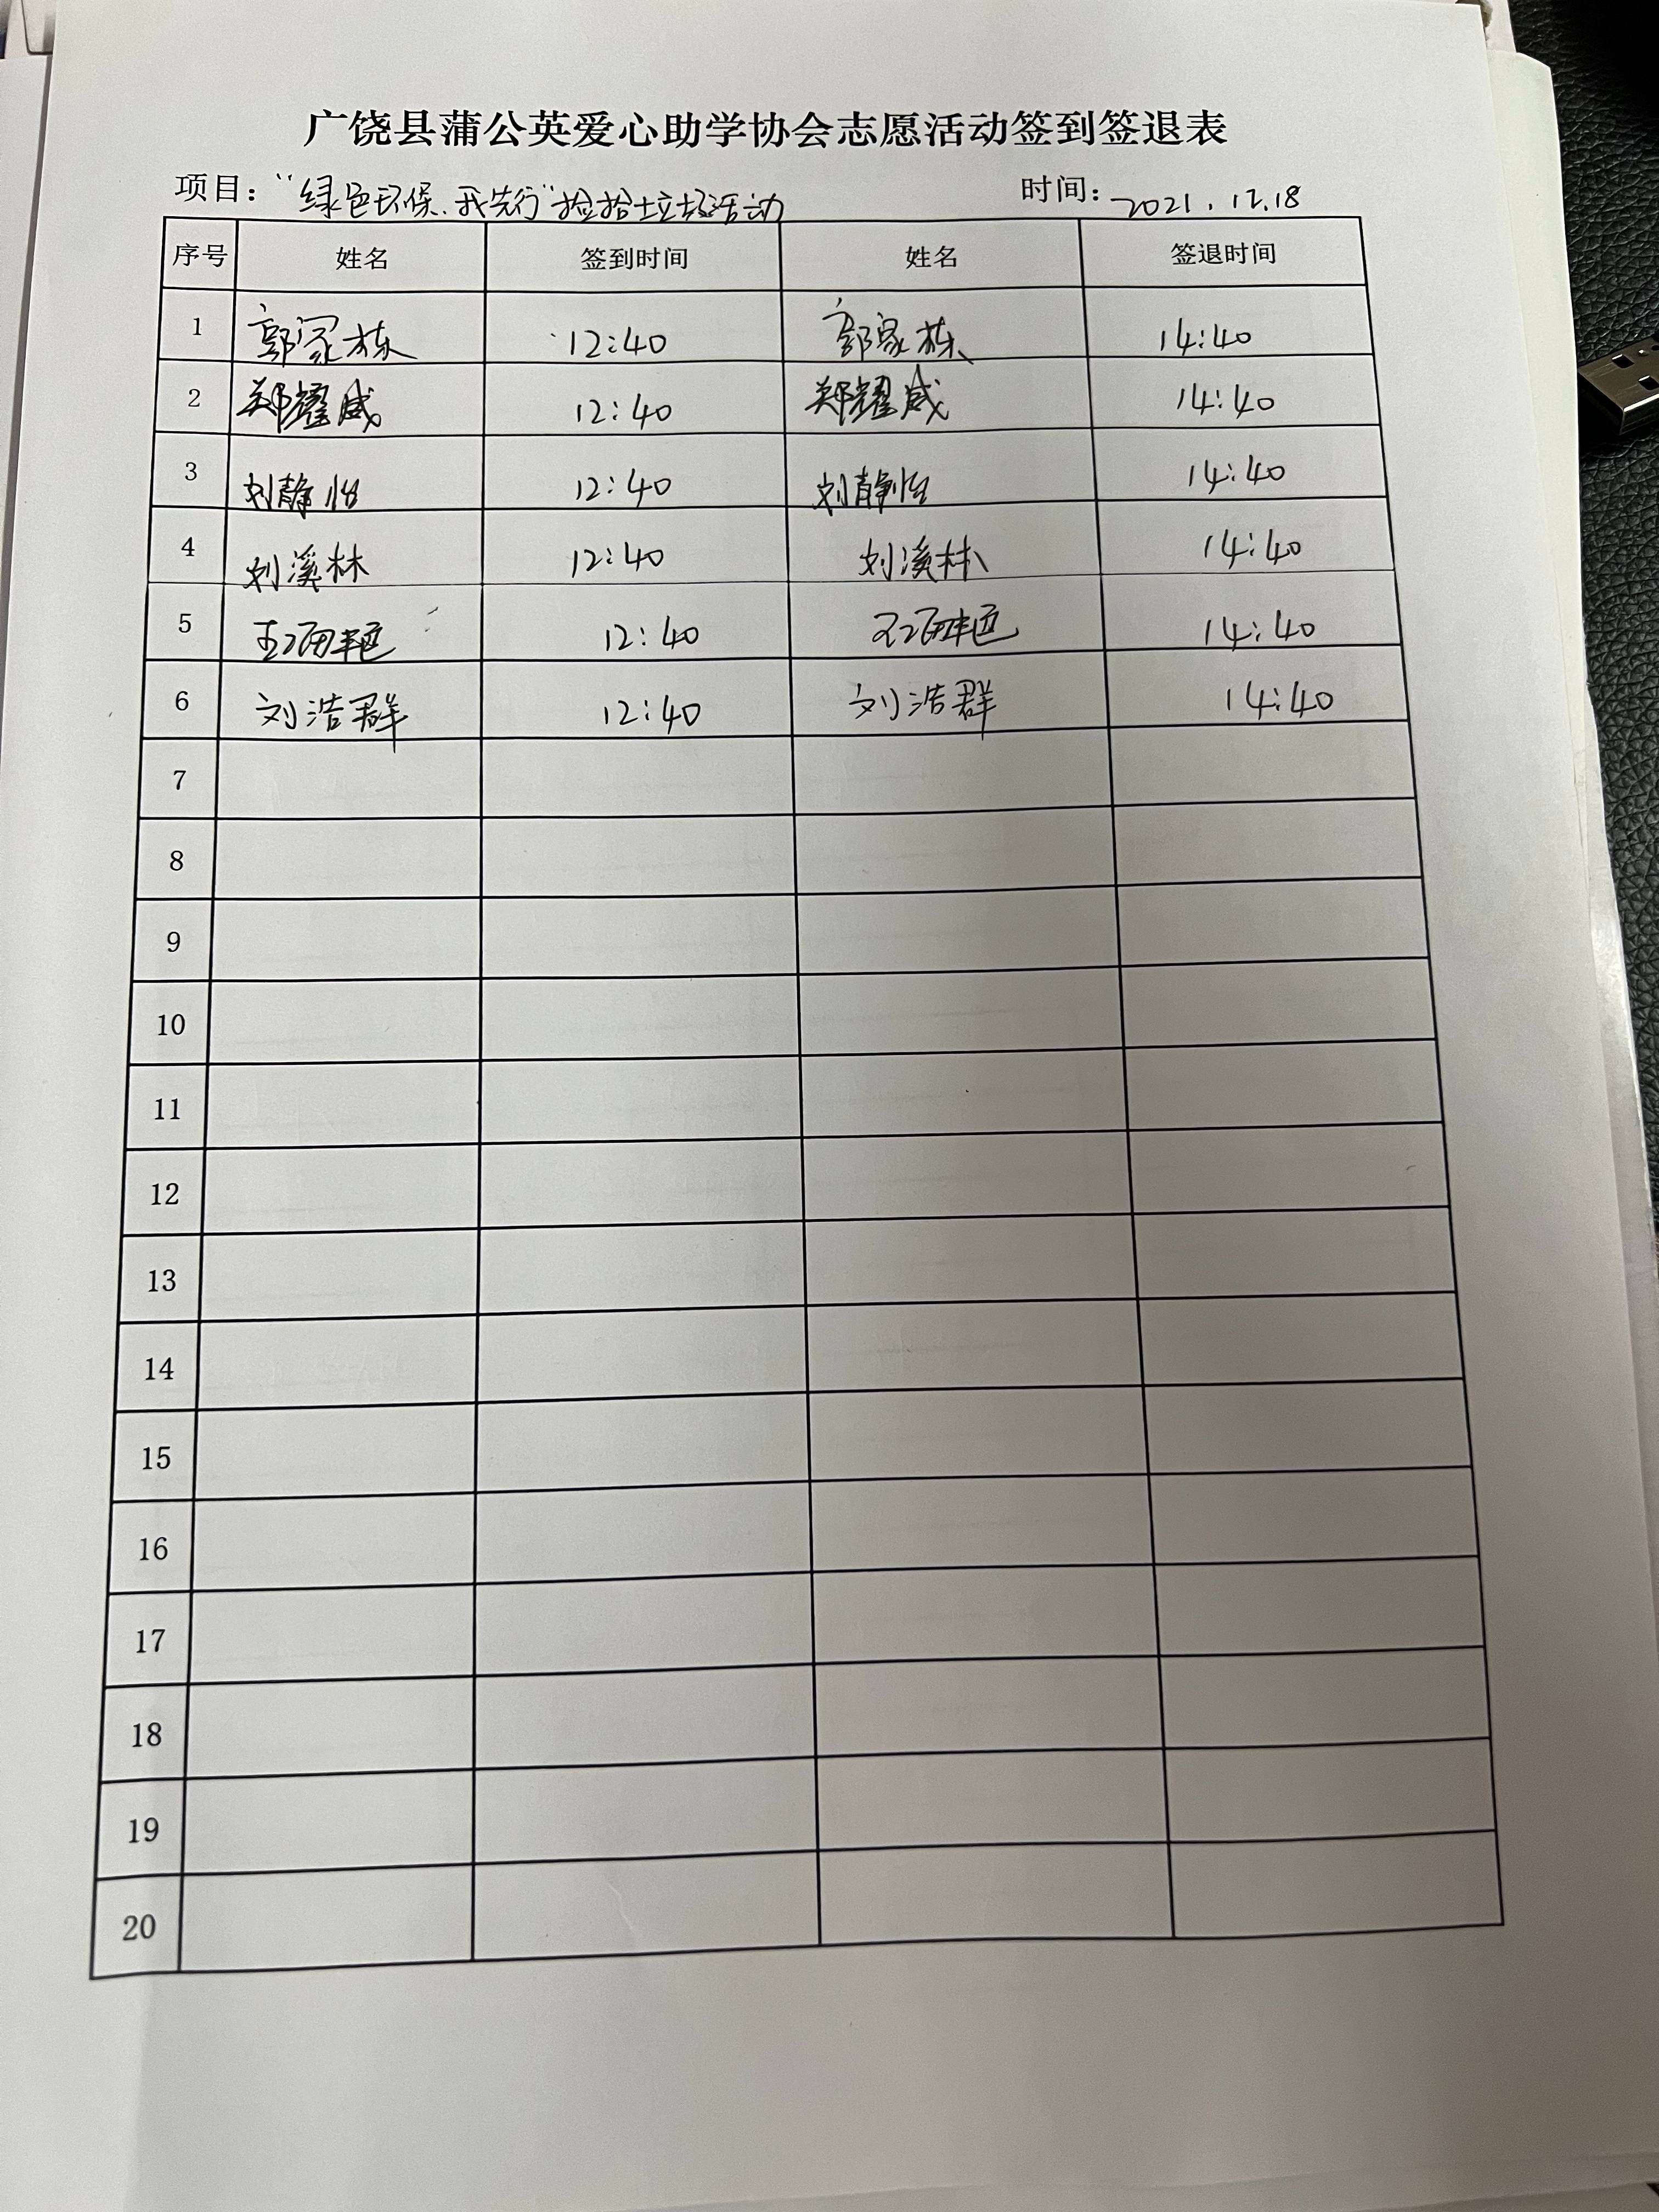 广饶县蒲公英爱心助学协会志愿活动签到签退表
项目：“绿色环保.我先行”捡拾垃圾活动 时间：2021.12.18
序号 姓名 签到时间 姓名 签退时间
1 郭家栋 12:40 郭家栋 14:40
2 郑耀威 12:40 郑耀威 14:40
3 刘静怡 12:40 刘静怡 14:40
4 刘溪林 12:40 刘溪林 14:40
5 12:40 14:40
6 刘浩群 12:40 刘浩群 14:40
7
8
9
10
11
12
13
14
15
16
17
18
19
20